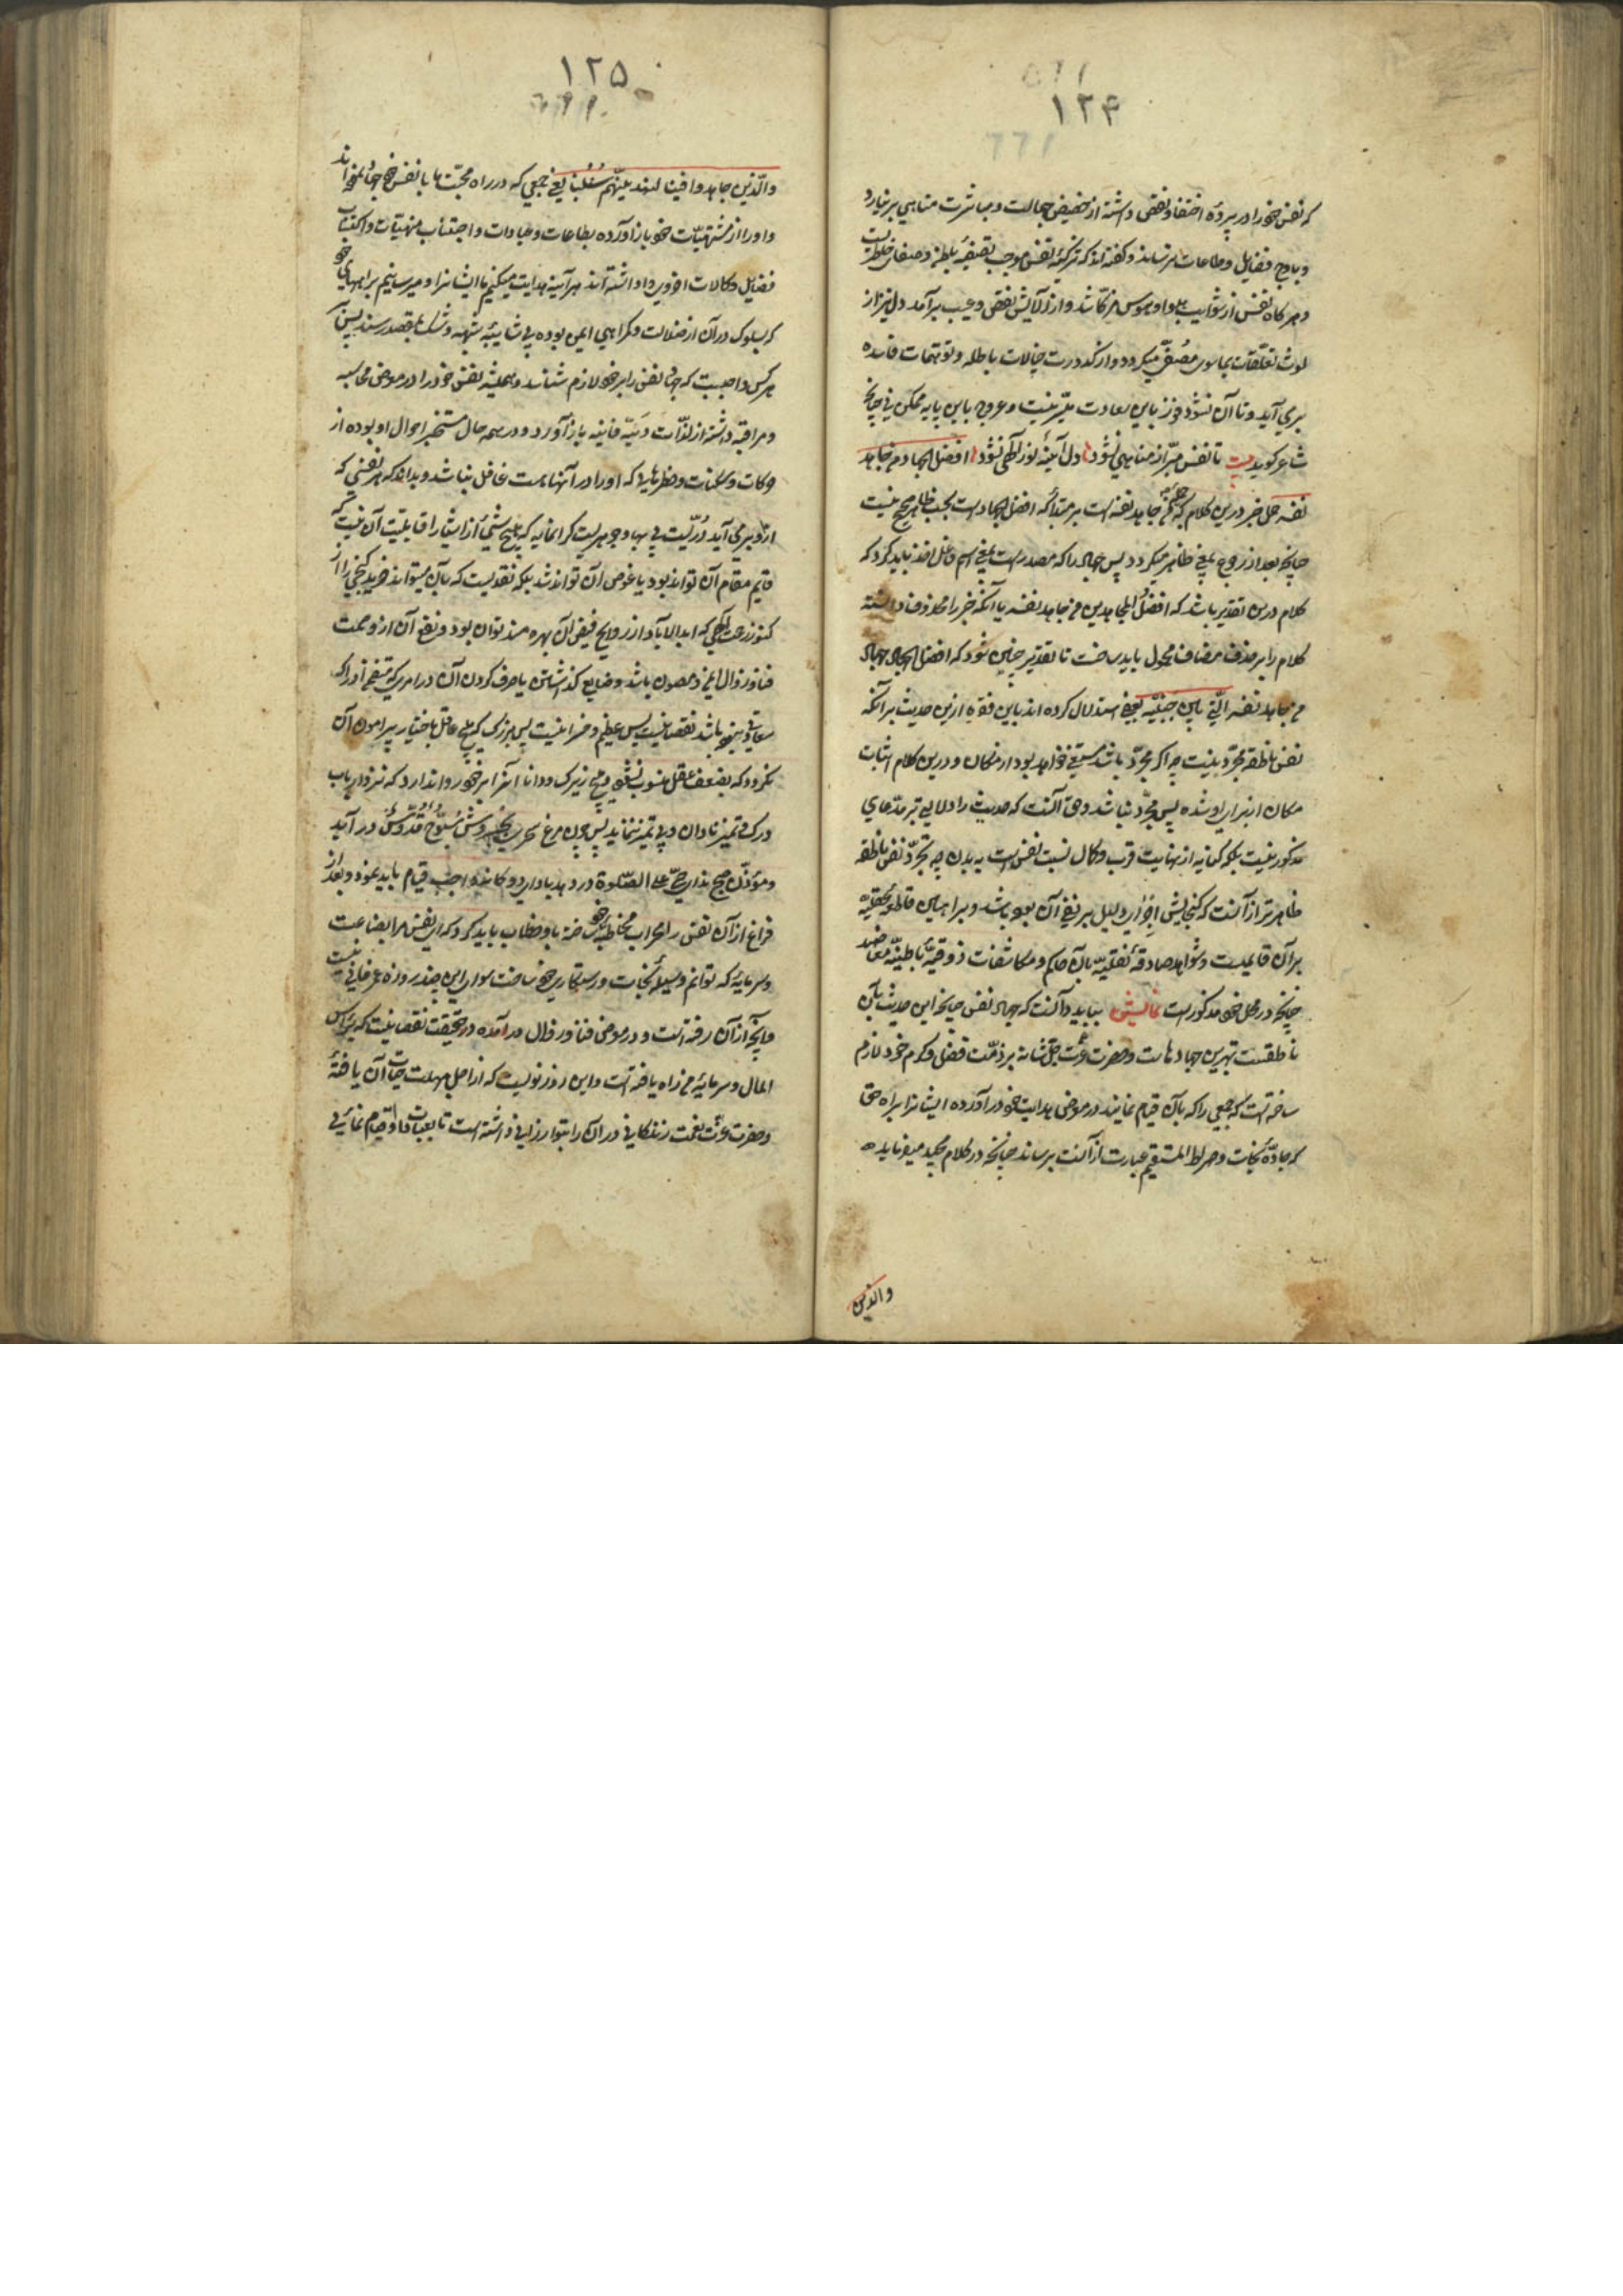 ١٢۴
که نفس خود را در پرده اختفا و نقص داشته از حضیض جهالت و مباشرت مناهی بر نیارد
و باوج فضایل و طاعات برساند و گفته اند که تزکیه نفس موجب تصفیه باطن و صفای خاطر است
و هر گاه نفس از شوایب هوا و هوس مزکّا شد و از آلایش نقص و عیب بر آمد دل نیز از
لوث تعلّقات بماسوی مصفّی میگردد و از کدورت خیالات باطله و توهمات فاسده
بر می آید و تا آن نشود فوز باین سعادت میسّر نیست و عروج باین پایه ممکن نی چنانچه
شاعر گوید بیت تا نفس مبرّا ز مناهی نشود دل آینهٔ نور الهی نشود افضل الجهاد من جاهد
نفسه حمل خبر درین کلام که جملهٔ من جاهد نفسه است بر مبتدا که افضل الجهاد است بحسب ظاهر صحیح نیست
چنانچه بعد از رجوع بمعنی ظاهر میگردد پس جهاد را که مصدر است بمعنی اسم فاعل اخذ باید کرد که
کلام درین تقدیر باشد که افضل المجاهدین من جاهد نفسه یا آنکه خبر را محذوف داشته
کلام را بر حذف مضاف محمول باید ساخت تا تقدیر چنین شود که افضل الجهاد جهاد
من جاهد نفسه الّتی بین جنبیه بعضی استدلال کرده اند باین فقره ازین حدیث بر آنکه
نفس ناطقه مجرّد نیست چه اگر مجرّد باشد مستغنی خواهد بود از مکان و درین کلام اثبات
مکان از برای او شده پس مجرّد نباشد و حق آنست که حدیث را دلالتی بر مدّعای
مذکور نیست بلکه کنایه از نهایت قرب و کمال نسبت نفس است به بدن چه تجرّد نفس ناطقه
ظاهر تر از آنست که گنجایش اجرای دلیل بر نفی آن بوده باشد و براهین قاطعهٔ عقلیه
بر آن قایمست و شواهد صادقهٔ نقلیه بآن حاکم و مکاشفات ذوقیهٔ باطنیه معاضد
چنانچه در محل خود مذکور است نمایش بباید دانست که جهاد نفس چنانچه این حدیث بآن
ناطقست بهترین جهادهاست و حضرت عزّت جلّ شانه بر ذمّت فضل و کرم خود لازم
ساخته است که جمعی را که بآن قیام نمایند در معرض هدایت خود در آورده ایشانرا براه حق
که جادّهٔ نجات و صراط المستقیم عبارت از آنست برساند چنانچه در کلام مجید میفرماید
والذین
١٢۵
والّذین جاهدوا فینا لنهدینّهم سبلنا یعنی جمعی که در راه محبّت ما با نفس خود جهاد نموده اند
و او را از مشتهیّات خود باز آورده بطاعات و عبادات و اجتناب منهیّات و اکتساب
فضایل و کمالات اخروی وا داشته اند هر آینه هدایت میکنیم ما ایشانرا و میرسانیم براههای خود
که بسلوک در آن از ضلالت و گمراهی ایمن بوده بی شایبهٔ شبهه و شک بمقصد رسند پس بر
هر کس واجبست که جهاد نفس را بر خود لازم شناسد و همیشه نفس خود را در معرض محاسبه
و مراقبه داشته از لذّات دنیّه فانیه باز آورد و در همه حال مستخبر احوال او بوده از
حرکات و سکنات و خطرهایی که او را در آنهاست غافل نباشد و بداند که هر نفسی که
ازو بر می آید درّیست بی بها و جوهریست گرانمایه که هیچ شئی از اشیا را قابلیّت آن نیست که
قایم مقام آن تواند بود یا عوض آن تواند شد بلکه نقدیست که بآن میتواند خرید گنجی را از
کنوز رحمت الهی که ابد الاباد از روایح فیض آن بهره مند توان بود و نفع آن از وصمت
فنا و زوال ایمن و مصون باشد و ضایع گذاشتن یا صرف کردن آن در امری که متضمن ادراک
سعادتی نبوده باشد نقصانیست بس عظیم و خسرانیست بس بزرگ که هیچ عاقل باختیار پیرامون آن
نگردد که بضعف عقل منسوب نشود و هیچ زیرک و دانا آنرا بر خود روا ندارد که نزد ارباب
درک و تمیز نادان و بی تمیز ننماید پس چون مرغ سحری بخروش سبّوح قدّوس در آید
و مؤذن صبح ندای حیّ علی الصّلوة در دهد بادای دوگانهٔ واجب قیام باید نمود و بعد از
فراغ از آن نفس را بمحراب مخاطبهٔ خود ساخته باو خطاب باید کرد که ای نفس مرا بضاعت
و سرمایهٔ که توانم وسیلهٔ نجات و رستگاری خود ساخت سوای این چند روزه عمر فانی نیست
و آنچه از آن رفته است و در معرض فنا و زوال در آمده در حقیقت نقصانیست که براس
المال و سرمایهٔ من راه یافته است و این روز نویست که از اجل مهلت حیات آن یافتهٔ
و حضرت عزّت نعمت زندگانی در آن را بتو ارزانی داشته است تا بعبادت او قیام نمائی